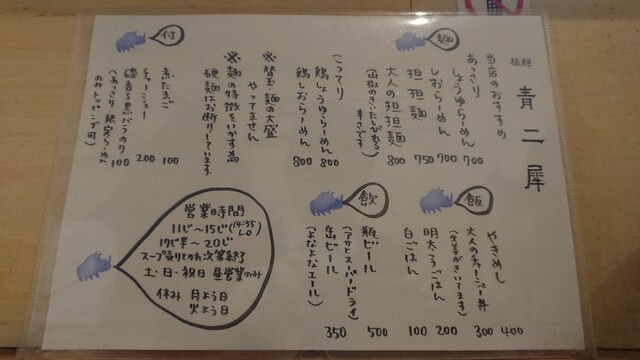 極麺 青二犀
麺
当店のおすすめ
あっさり
しょうゆらーめん 700
しおらーめん 700
担担麺 750
大人の担担麺 800
(山椒のきいたしびれる辛さです)
こってり
鶏しょうゆらーめん 800
鶏しおらーめん 800
※替玉・麺の大盛
やってません
※麺の特徴をいかす為
硬麺はお断りしています。
付
煮たまご 100
チャーシュー 200
磯香る黒バラのり 100
(あっさり、限定らーめん
のみトッピング可)
飯
やきめし 400
大人のチャーシュー丼 300
(生姜がきいてます)
明太子ごはん 200
白ごはん 100
飲
瓶ビール 500
(アサヒスーパードライ)
缶ビール 350
(よなよなエール)
営業時間
11じ〜15じ(14:55 LO)
17じ半〜20じ
スープ売りきれ次第終了
土・日・祝日 昼営業のみ
休み 月よう日
火よう日